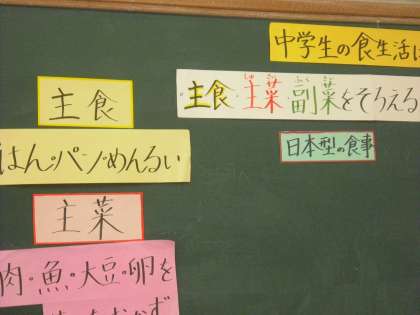 中学生の食生活に
主食・主菜 副菜をそろえる
しゅ さい ふく さい
日本型の食事
主食
はん・パン・めんるい
主菜
肉・魚・大豆・卵を